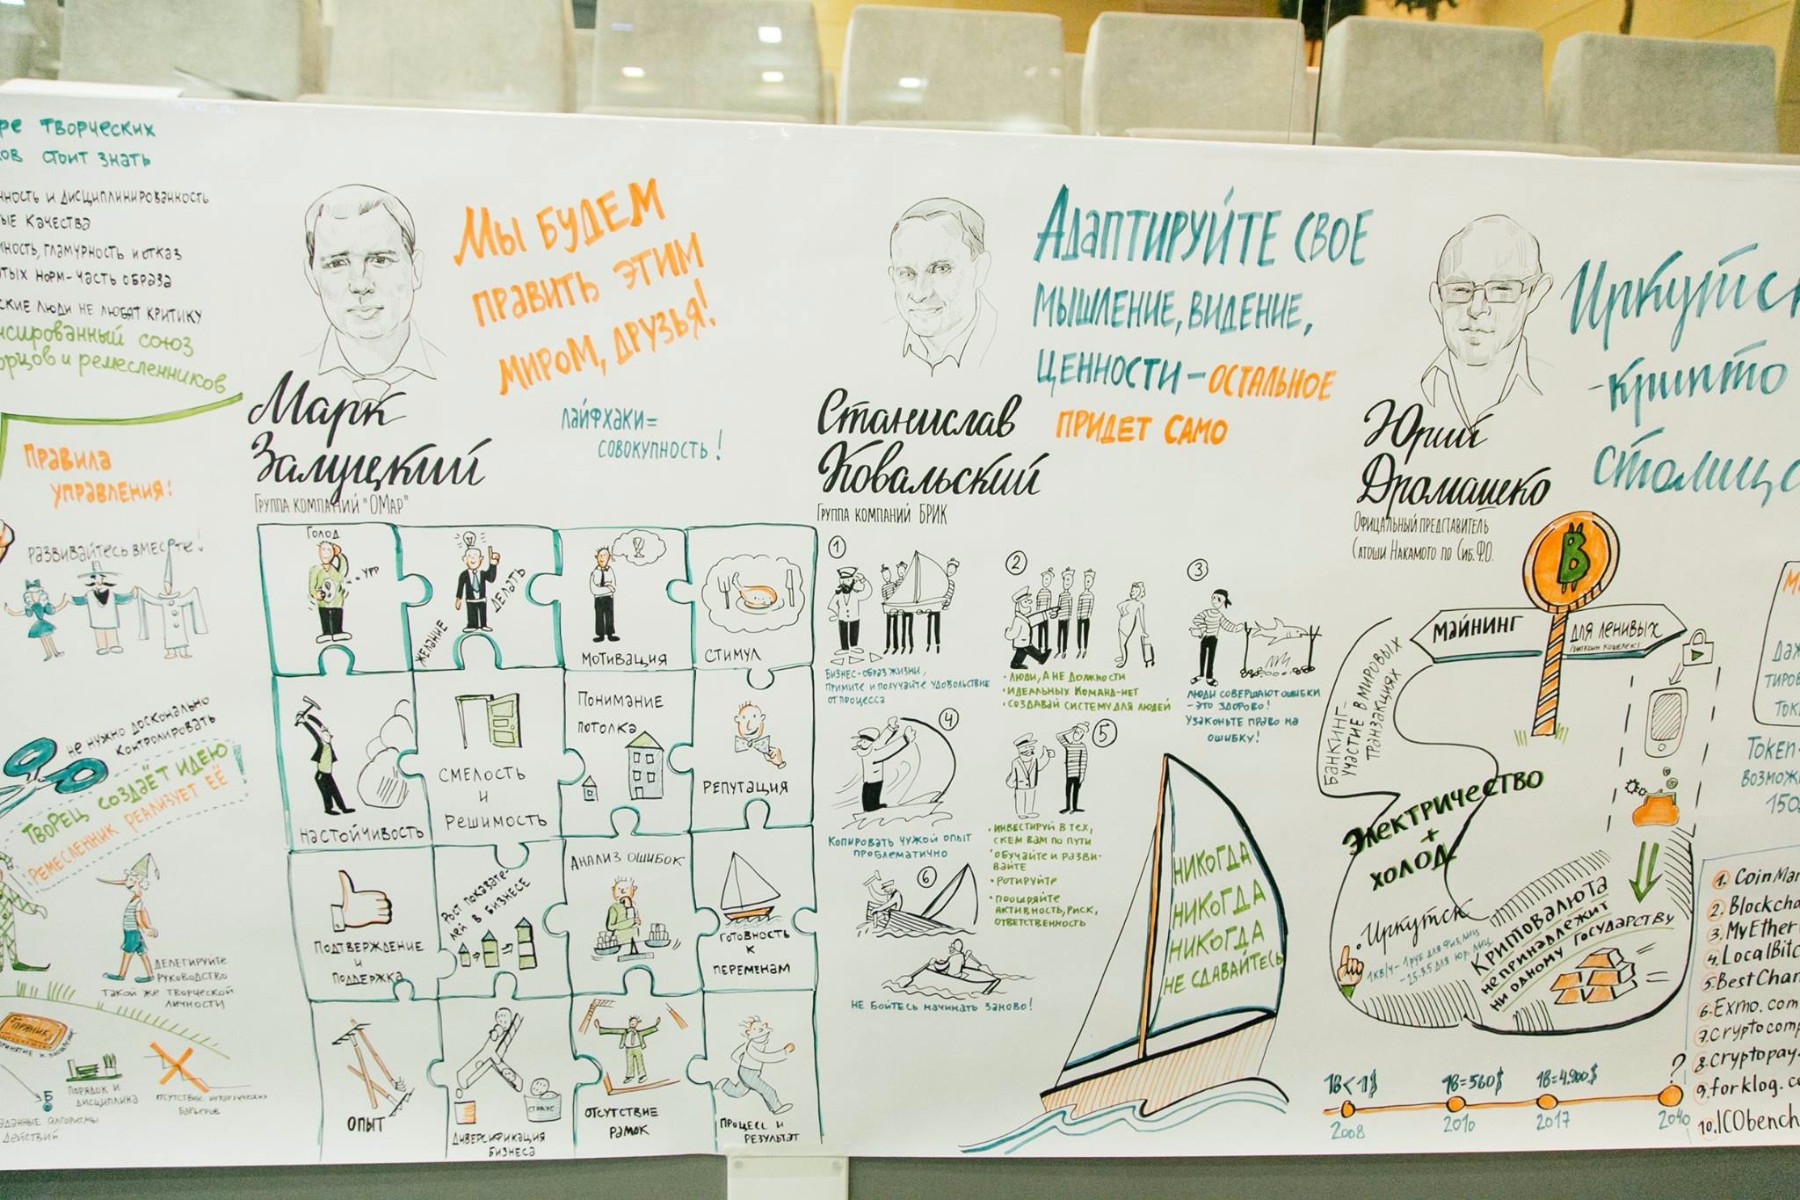 ре творческих
ов стоит знать
ность и дисциплинированность
ые качества
ность, гламурность и отказ
тых норм - часть образа
ские люди не любят критику
нсированный союз
орцов и ремесленников
Правила
управления:
Развивайтесь вместе!
не нужно досконально
контролировать
Творец создаёт идею
Ремесленник реализует её
!
Делегируйте
руководство
такой же творческой
личности
Порядок и
дисциплина
действий
Марк
Залуцкий
Группа компаний "ОМар"
Мы будем
править этим
миром, друзья!
Лайфхаки =
совокупность!
Голод
Желание
делать
Мотивация
Стимул
Настойчивость
Смелость
и
решимость
Понимание
потолка
Репутация
Подтверждение
и
поддержка
Рост показате-
лей в бизнесе
Анализ ошибок
Готовность
к
переменам
Опыт
Диверсификация
бизнеса
Отсутствие
рамок
Процесс и
результат
Станислав
Ковальский
Группа компаний БРИК
Адаптируйте свое
мышление, видение,
ценности - остальное
придет само
1
Бизнес-образ жизни,
примите и получайте удовольствие
от процесса
2
• Люди, а не должности
• Идеальных команд-нет
• Создавай систему для людей
3
Люди совершают ошибки
- это здорово!
Узаконьте право на
ошибку!
4
Копировать чужой опыт
проблематично
5
• Инвестируй в тех,
с кем вам по пути
• Обучайте и разви-
вайте
• Ротируйте
• Поощряйте
активность, риск,
ответственность
6
Не бойтесь начинать заново!
Никогда
Никогда
Никогда
не сдавайтесь
Юрий
Дромашко
Офицальный представитель
Сатоши Накамото по Сиб. Ф.О.
Иркутск
- крипто
столица
B
Майнинг
Для ленивых
Банкинг-
участие в мировых
транзакциях
Электричество
+
холод
Иркутск
Криптовалюта
непринадлежит
ни одному государству
Token-
возмож
150
1. CoinMar
2. Blockcha
3. MyEther
4. LocalBitc
5. BestChan
6. Exmo.com
7. Cryptocomp
8. Cryptopay.
9. forklog.c
10. ICObench
1B<1$
1B=560$
1B=4.900$
?
2008
2010
2017
2040